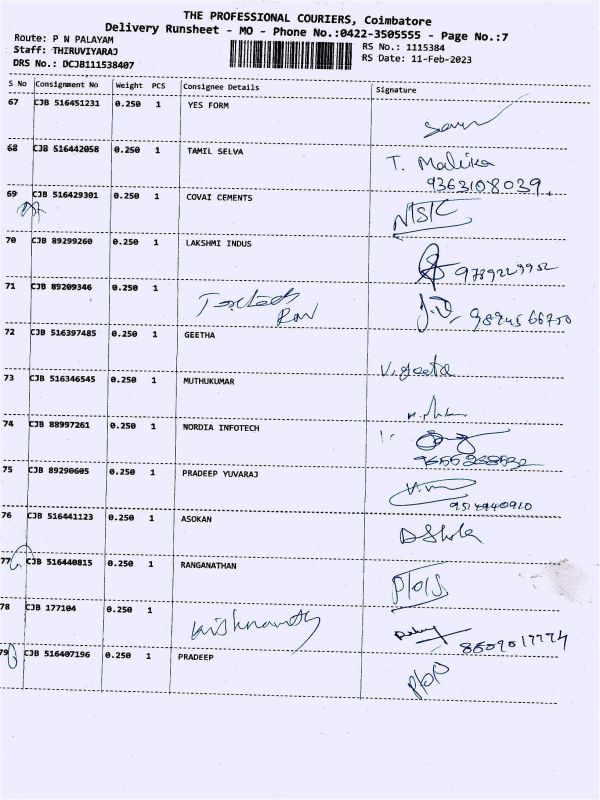 THE PROFESSIONAL COURIERS, Coimbatore
Delivery Runsheet - MO - Phone No.:0422-3505555 - Page No.:7
Route: P N PALAYAM
Staff: THIRUVIYARAJ
DRS No.: DCJB111538407
RS No.: 1115384
RS Date: 11-Feb-2023
S No Consignment No Weight PCS Consignee Details Signature
67 CJB 516451231 0.250 1 YES FORM
68 CJB 516442058 0.250 1 TAMIL SELVA T. Malika
9363108039
69 CJB 516429301 0.250 1 COVAI CEMENTS
70 CJB 89299260 0.250 1 LAKSHMI INDUS 9789229952
71 CJB 89209346 0.250 1
72 CJB 516397485 0.250 1 GEETHA V. geeta
73 CJB 516346545 0.250 1 MUTHUKUMAR
74 CJB 88997261 0.250 1 NORDIA INFOTECH
75 CJB 89290605 0.250 1 PRADEEP YUVARAJ
76 CJB 516441123 0.250 1 ASOKAN
77 CJB 516440815 0.250 1 RANGANATHAN
78 CJB 177104 0.250 1
79 CJB 516407196 0.250 1 PRADEEP